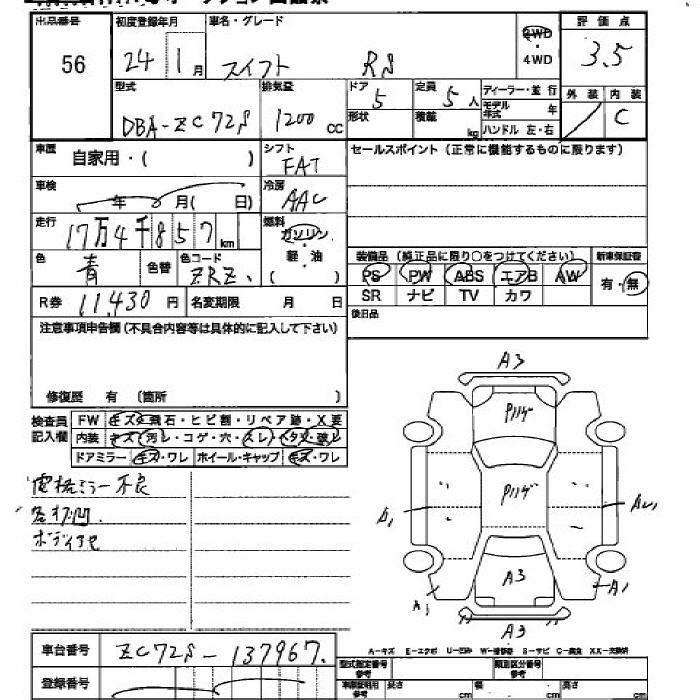 出品番号 初度登録年月 車名・グレード 評価点
56 24年 1月 スイフト RS 2WD・4WD 3.5
型式 排気量 ドア 定員 ディーラー・並行 外装 内装
DBA-ZC72S 1200cc 5 5人 モデル年式 年 C
形状 積載 kg ハンドル 左・右
車歴 自家用・( ) シフト FAT セールスポイント(正常に機能するものに限ります)
車検 年 月( 日) 冷房 AAC
走行 17万4千857km 燃料 ガソリン・軽・油( )
色 青 色替 色コード ZRZ 装備品(純正品に限り○をつけてください) 新車保証書
PS PW ABS エアB AW 有・無
R券 11,430円 名変期限 月 日 SR ナビ TV カワ
注意事項申告欄(不具合内容等は具体的に記入して下さい) 後日品
修復歴 有 (箇所 )
検査員記入欄 FW キズ・飛石・ヒビ割・リペア跡・X要
内装 キズ・汚レ・コゲ・穴・スレ・ヘタリ・破レ
ドアミラー キズ・ワレ ホイール・キャップ キズ・ワレ
電格ミラー不良
A3
A1
A3
A1
A3
車台番号 ZC72S-137967
A-キズ E-エクボ U-凹み W-補修跡 S-サビ C-腐食 XX-交換済
登録番号 型式指定番号参考 類別区分番号参考
車庫証明用参考 長さ cm 幅 cm 高さ cm